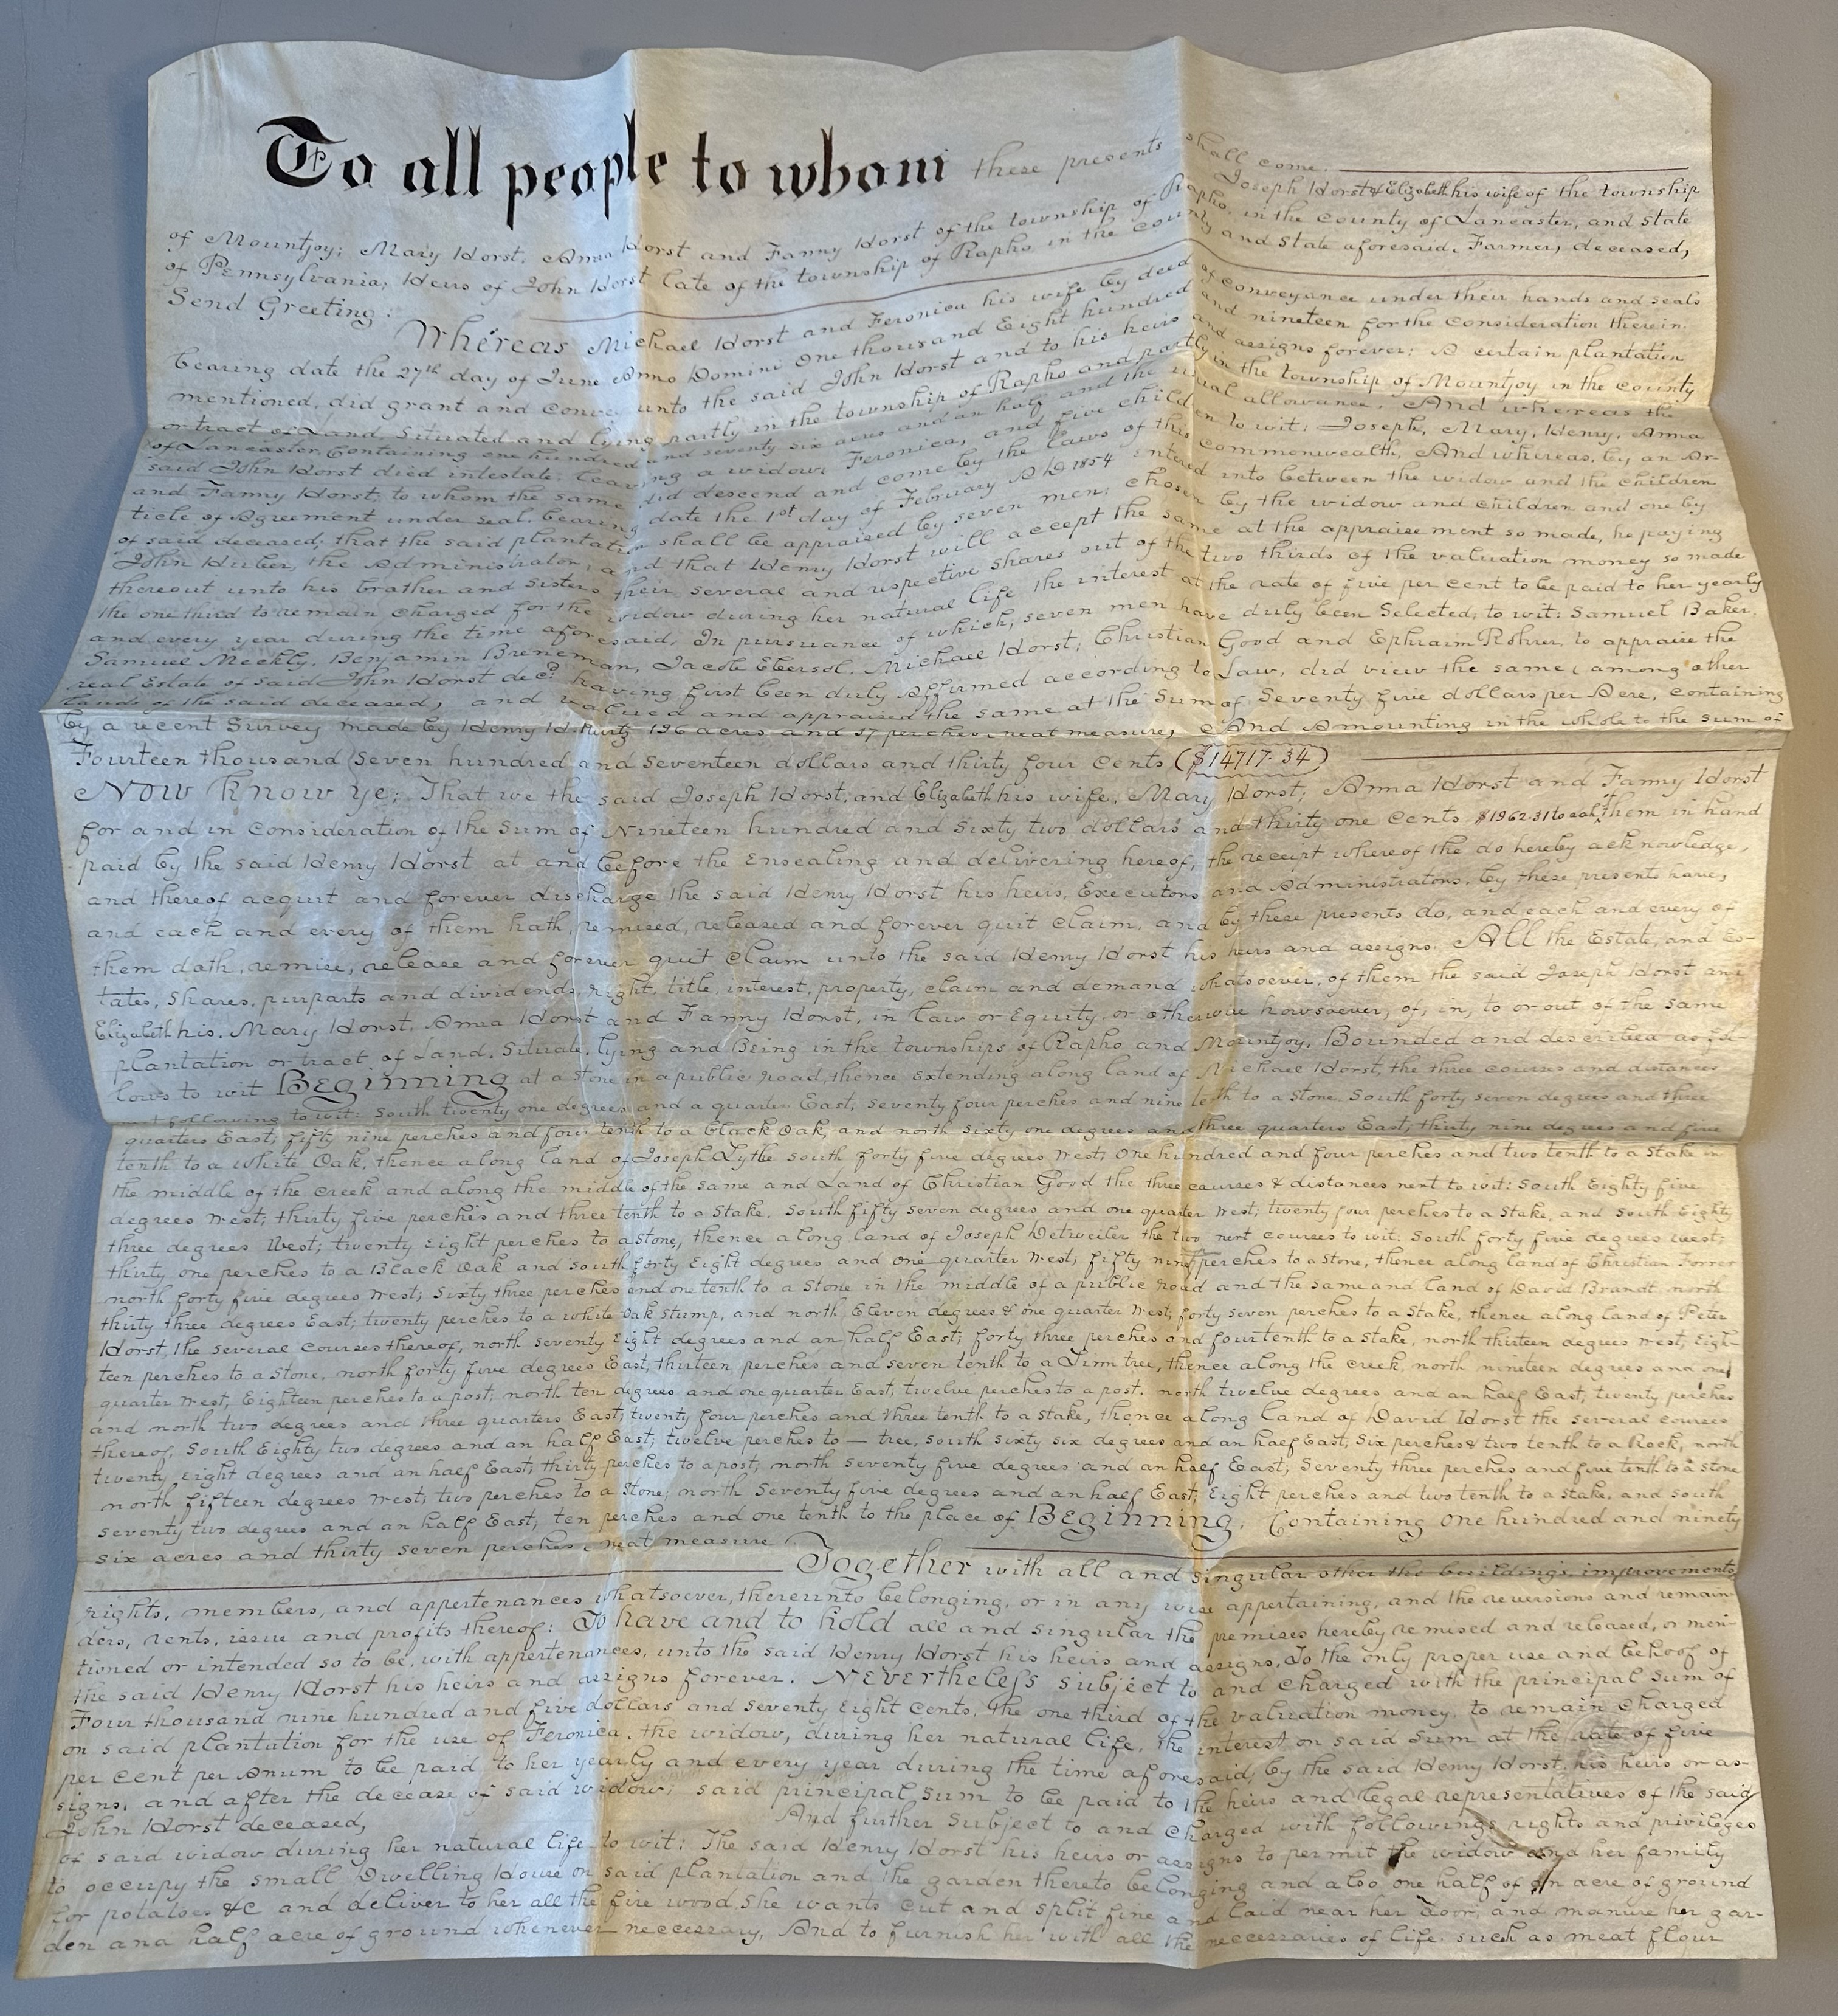 To all people to whom these presents shall come. Joseph Horst & Elizabeth his wife of the township
of Mountjoy; Mary Horst, Anna Horst and Fanny Horst of the township of Rapho, in the County of Lancaster, and State
of Pennsylvania; Heirs of John Horst late of the township of Rapho in the county and State aforesaid, Farmer, deceased,
Send Greeting:
Whereas Michael Horst and Feronica his wife by deed of conveyance under their hands and seals
bearing date the 27th day of June Anno Domini One thousand Eight hundred and nineteen for the Consideration therein
mentioned, did grant and convey unto the said John Horst and to his heirs and assigns forever; A certain plantation
or tract of Land, Situated and lying partly in the township of Rapho and partly in the township of Mountjoy in the County
of Lancaster, Containing one hundred and seventy six acres and an half and the usual allowance. And whereas the
said John Horst died intestate, leaving a widow, Feronica, and five children to wit: Joseph, Mary, Henry, Anna
and Fanny Horst, to whom the same did descend and come by the Laws of this Commonwealth, And whereas, by an Ar-
ticle of Agreement under seal, bearing date the 1st day of February A D 1854 entered into between the widow and the children
of said deceased; that the said plantation shall be appraised by seven men, chosen by the widow and children and one by
John Huber, the Administrator, and that Henry Horst will accept the same at the appraisement so made, he paying
thereout unto his brather and sisters their several and respective shares out of the two thirds of the valuation money so made
the one third to remain charged for the widow during her natural life the interest at the rate of five per cent to be paid to her yearly
and every year during the time aforesaid. In pursuance of which, seven men have duly been Selected, to wit: Samuel Baker,
Samuel Meckly, Benjamin Breneman, Jacob Ebersol, Michael Horst, Christian Good and Ephraim Rohrer, to appraise the
real Estate of said John Horst decd. having first been duly Affirmed according to Law, did view the same, among other
lands of the said deceased, and valued and appraised the same at the Sum of Seventy five dollars per Acre, containing
by a recent Survey made by Henry H. Kurtz 196 acres and 37 perches, neat measure, And Amounting in the whole to the sum of
Fourteen thousand Seven hundred and Seventeen dollars and thirty four Cents ($14717.34)
Now Know ye; That we the said Joseph Horst, and Elizabeth his wife, Mary Horst, Anna Horst and Fanny Horst
for and in Consideration of the Sum of Nineteen hundred and Sixty two dollars and thirty one Cents $1962.31 to each of them in hand
paid by the said Henry Horst at and before the Ensealing and delivering hereof, the receipt whereof the do hereby acknowledge,
and thereof acquit and forever discharge the said Henry Horst his heirs, Executors and Administrators, by these presents have,
and each and every of them hath, remised, released and forever quit claim, and by these presents do, and each and every of
them doth, remise, release and forever quit Claim unto the said Henry Horst his heirs and assigns. All the Estate, and Es-
tates, Shares, purparts and dividends, right, title, interest, property, claim and demand whatsoever, of them the said Joseph Horst and
Elizabeth his, Mary Horst, Anna Horst and Fanny Horst, in Law or Equity, or otherwise howsoever, of, in, to or out of the same
plantation or tract of Land, Situate, lying and Being in the townships of Rapho and Mountjoy, Bounded and described as fol-
lows to wit Beginning at a Stone in a public road, thence Extending along land of Michael Horst, the three courses and distances
next following to wit: South twenty one degrees and a quarter East, seventy four perches and nine tenth to a Stone, South forty seven degrees and three
quarters East; fifty nine perches and four tenth to a black Oak, and north sixty one degrees and three quarters East; thirty nine degrees and five
tenth to a white Oak, thence along land of Joseph Lytle south forty five degrees west, One hundred and four perches and two tenth to a Stake in
the middle of the Creek and along the middle of the same and Land of Christian Good the three courses & distances next to wit: South Eighty five
degrees west; thirty five perches and three tenth to a Stake, South fifty seven degrees and one quarter west; twenty four perches to a Stake, and South Eighty
three degrees West; twenty Eight perches to a Stone, thence along land of Joseph Detweiler the two next courses to wit: South forty five degrees west;
thirty one perches to a Black Oak and South forty Eight degrees and one quarter west; fifty nine perches to a Stone, thence along land of Christian Forrer
north forty five degrees west; Sixty three perches and one tenth to a Stone in the middle of a public road and the same and land of David Brandt north
thirty three degrees East; twenty perches to a white Oak Stump, and north Eleven degrees & one quarter West; forty seven perches to a Stake, thence along land of Peter
Horst, the several Courses thereof, north seventy Eight degrees and an half East; forty three perches and four tenth to a Stake, north thirteen degrees west, Eigh-
teen perches to a Stone, north forty five degrees East, thirteen perches and seven tenth to a Linn tree, thence along the creek, north nineteen degrees and one
quarter West, Eighteen perches to a post, north ten degrees and one quarter East, twelve perches to a post, north twelve degrees and an half East; twenty perches
and north two degrees and three quarters East; twenty four perches and three tenth to a Stake, thence along land of David Horst the several courses
thereof, South Eighty two degrees and an half East; twelve perches to — tree, South sixty six degrees and an half East, Six perches & two tenth to a Rock, north
twenty Eight degrees and an half East; thirty perches to a post; north seventy five degrees and an half East; Seventy three perches and five tenth to a Stone
north fifteen degrees west; two perches to a Stone; north Seventy five degrees and an half East; Eight perches and two tenth to a Stake, and South
seventy two degrees and an half East, ten perches and one tenth to the place of Beginning, Containing One hundred and ninety
six acres and thirty seven perches neat measure
Together with all and singular other the buildings, improvements,
rights, members, and appertenances whatsoever, thereunto belonging, or in any wise appertaining, and the reversions and remain-
ders, rents, issue and profits thereof: To have and to hold all and singular the premises hereby remised and released, or men-
tioned or intended so to be, with appertenances, unto the said Henry Horst his heirs and assigns, To the only proper use and behoof of
the said Henry Horst his heirs and assigns forever. Nevertheless subject to and charged with the principal sum of
Four thousand nine hundred and five dollars and seventy Eight cents, the one third of the valuation money, to remain charged
on said plantation for the use of Feronica, the widow, during her natural life, the interest on said Sum at the rate of five
per cent per Anum to be paid to her yearly and every year during the time aforesaid, by the said Henry Horst, his heirs or as-
signs, and after the decease of said widow, said principal sum to be paid to the heirs and legal representatives of the said
John Horst deceased, And further Subject to and charged with followings rights and privileges
of said widow during her natural life to wit: The said Henry Horst his heirs or assigns to permit the widow and her family
to occupy the small Dwelling House on said plantation and the garden thereto belonging and also one half of an acre of ground
for potatoes &C and deliver to her all the fire wood she wants cut and split fine and laid near her door, and manure her gar-
den and half acre of ground whenever neccessary, And to furnish her with all the neccessaries of life such as meat flour